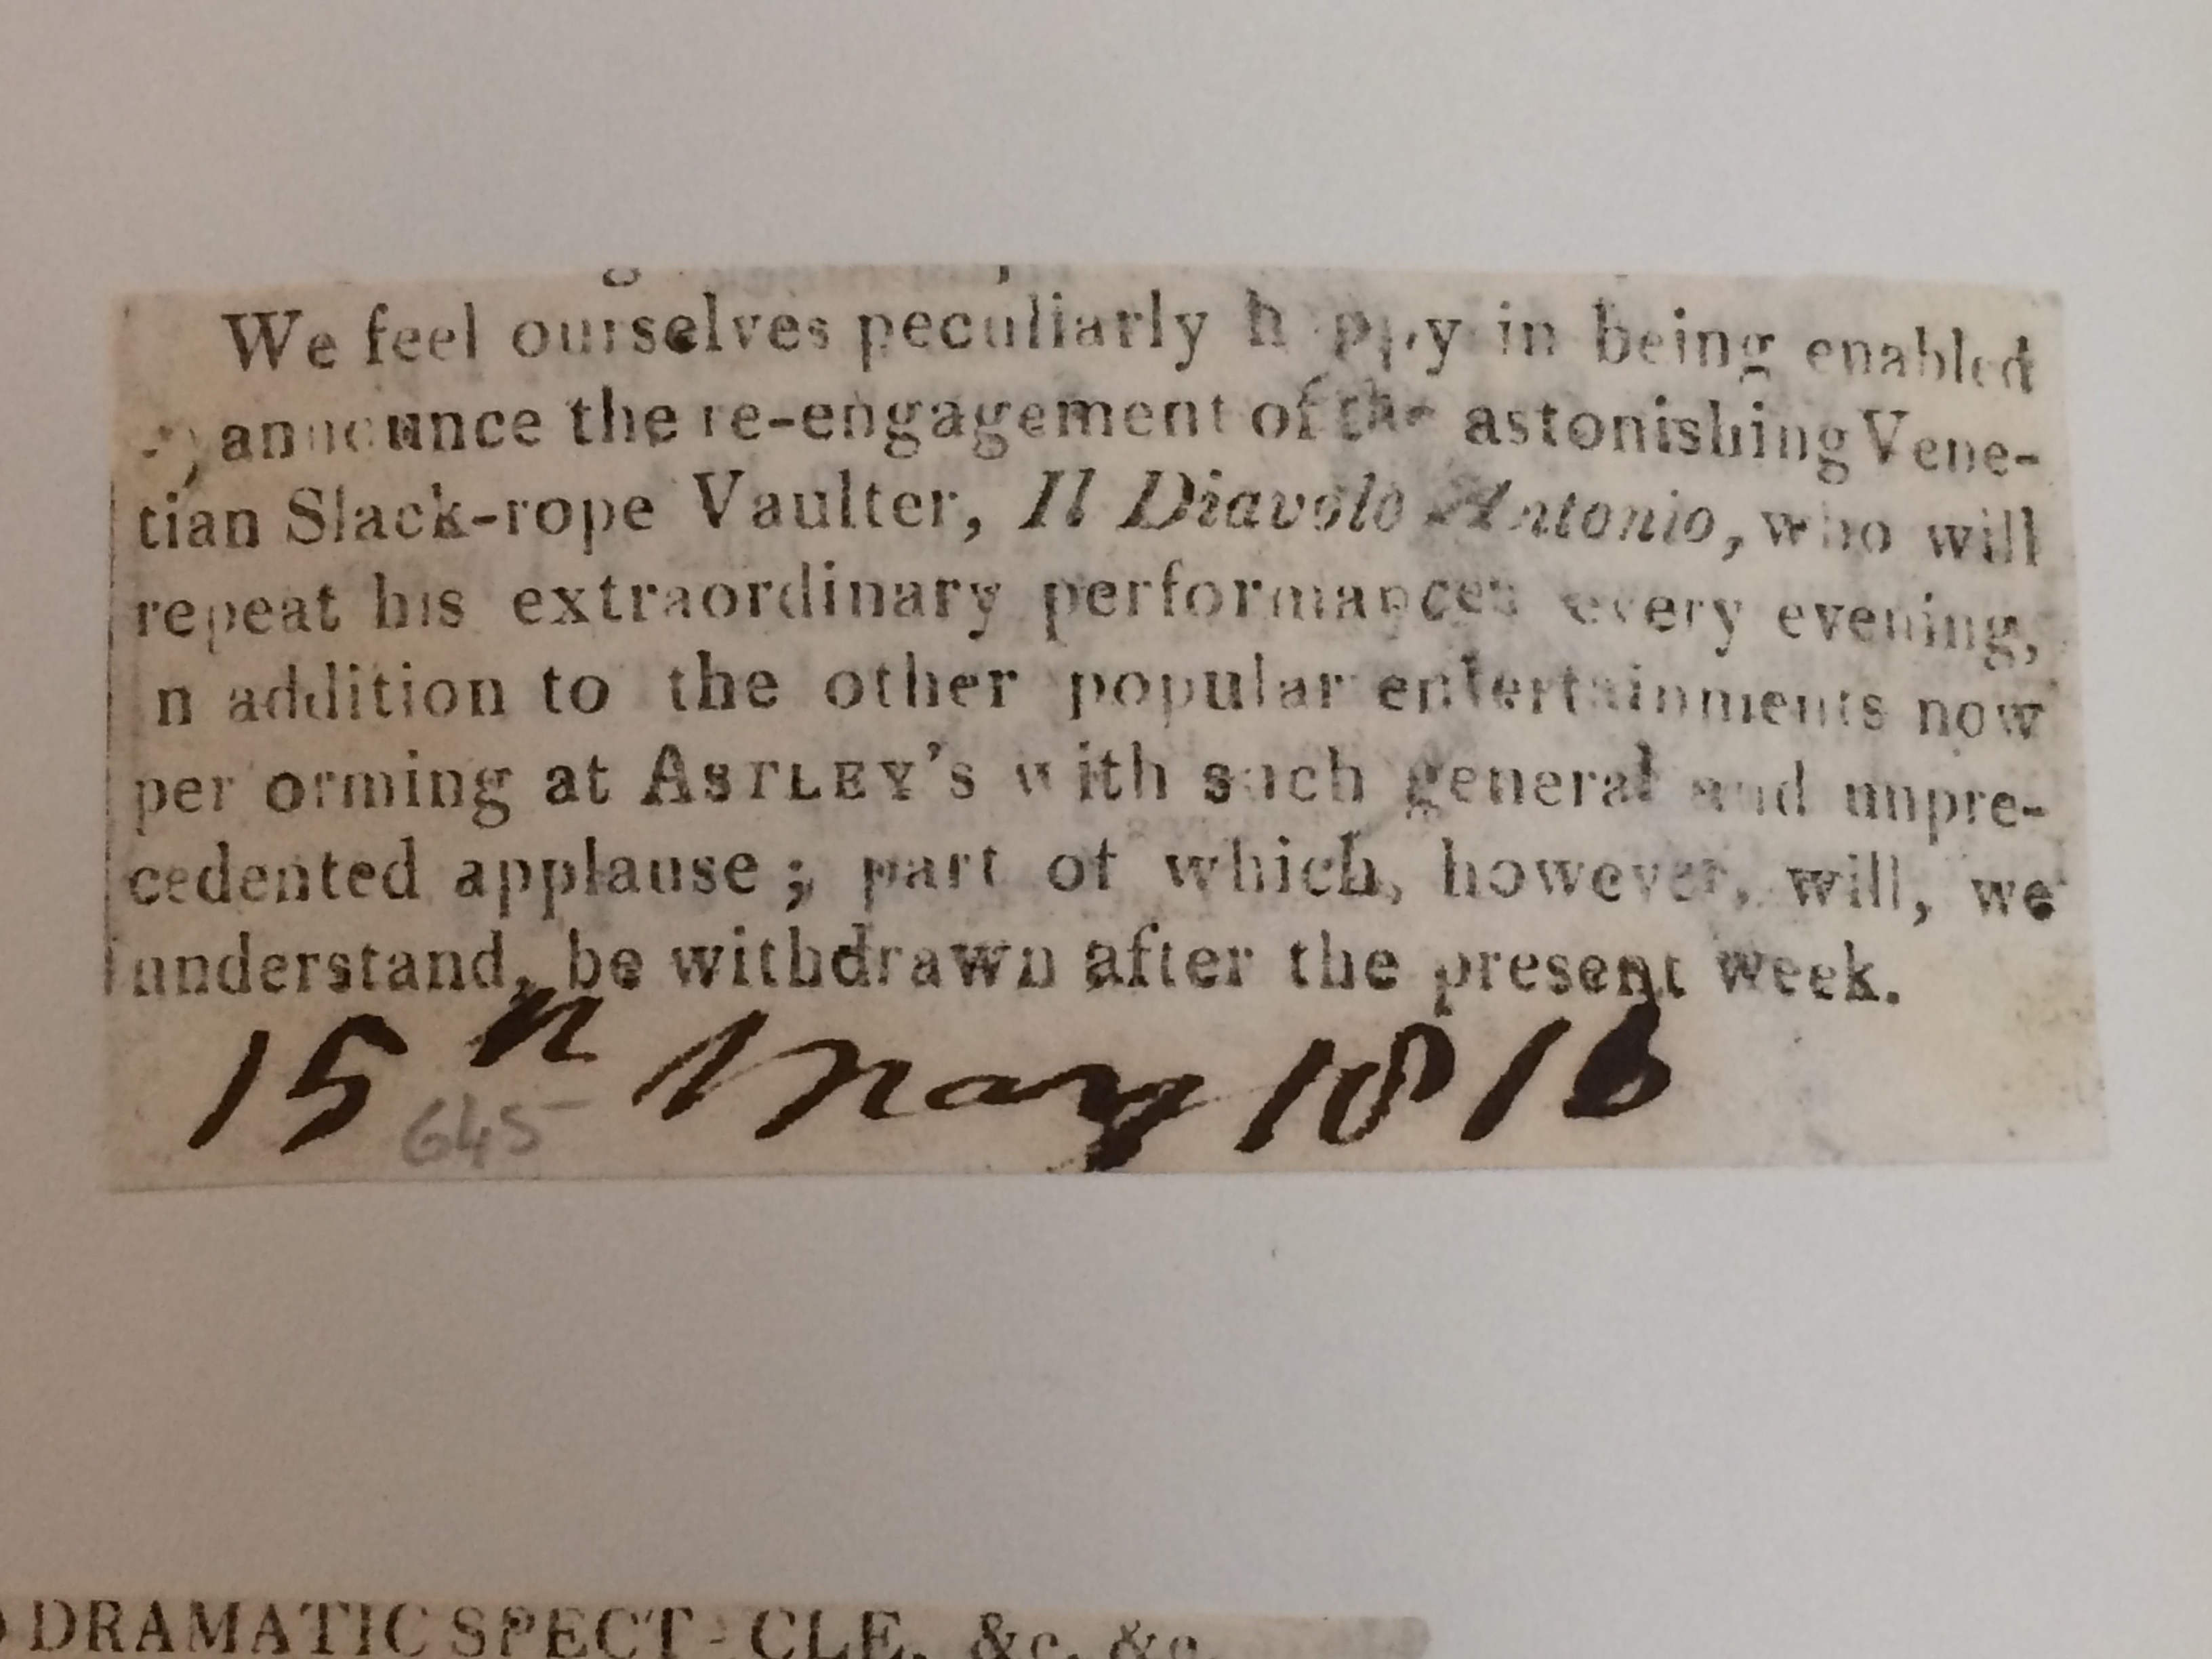 We feel ourselves peculiarly happy in being enabled
announce the re-engagement of the astonishing Vene-
tian Slack-rope Vaulter, Il Diavolo Antonio, who will
repeat his extraordinary performances every evening,
n addition to the other popular entertainments now
per orming at ASTLEY's with such general and unpre-
cedented applause; part of which, however, will, we
understand, be withdrawn after the present week.
15th May 1816
645
DRAMATIC SPECT CLE, &c. &c.